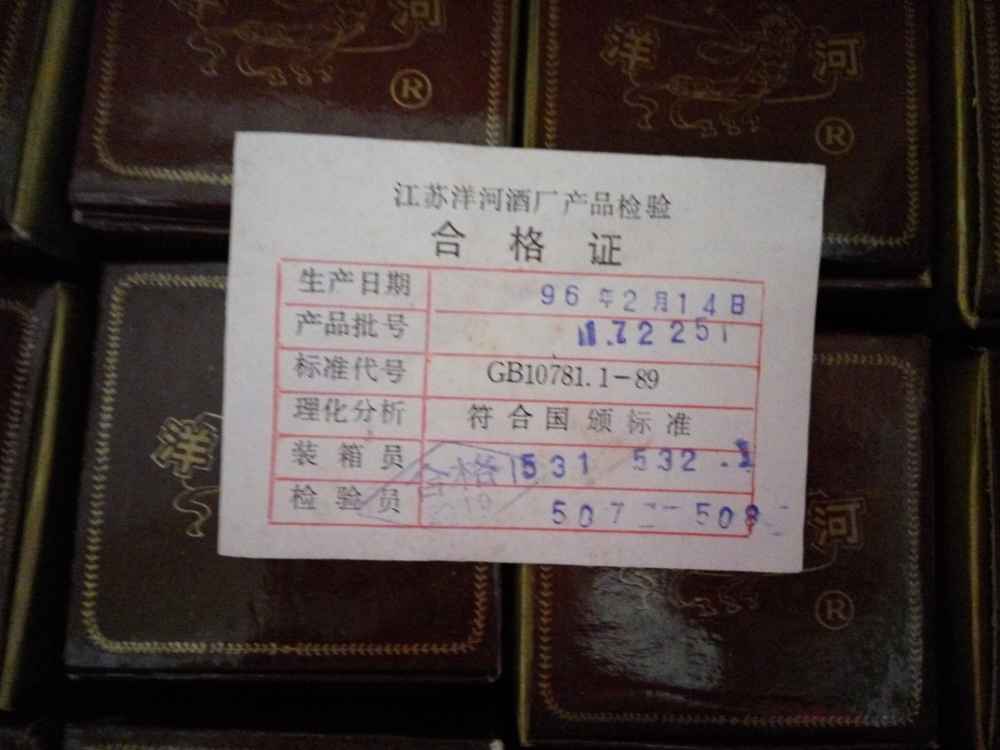 河
®
洋 河
®
江苏洋河酒厂产品检验
合格证
生产日期 96年2月14日
产品批号
标准代号 GB10781.1-89
理化分析 符合国颁标准
装箱员 531 532
检验员 507 508
合格
洋
河
®